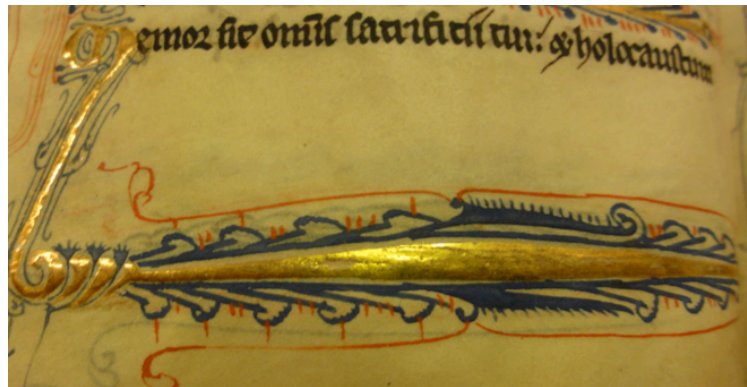 Memor sit omīs sacrificii tui: & holocaustum